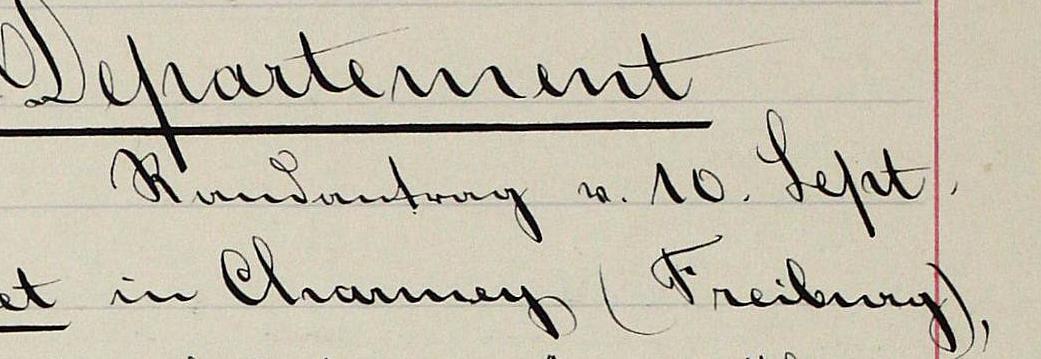 Departement
Randantrag v. 10. Sept.
et in Charmey (Freiburg),